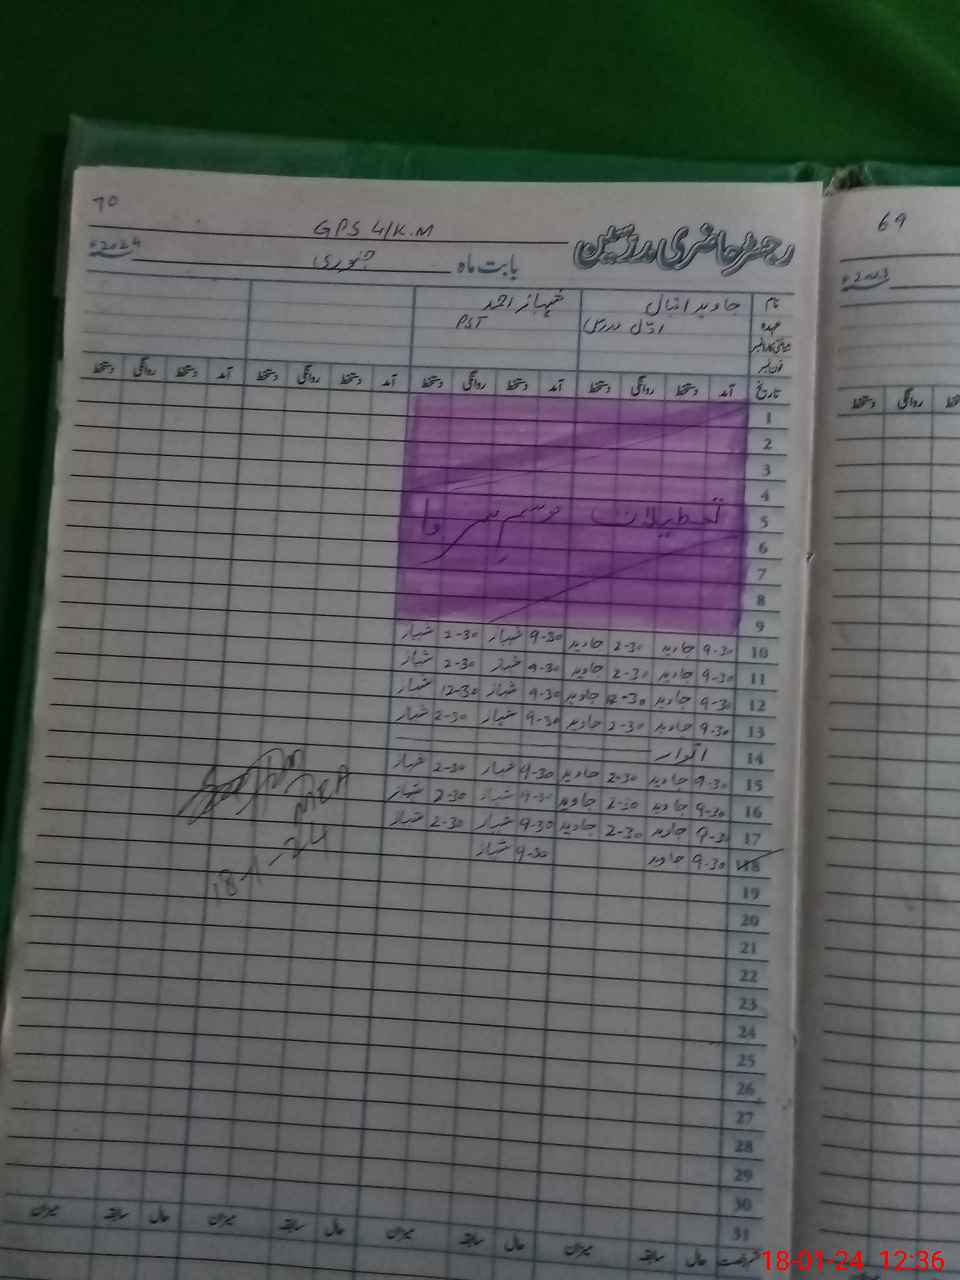 70
GPS 4/K.M
رجسٹر حاضری مدرسین
بابت ماہ جنوری 2024ء
نام جاوید اقبال شہباز احمد
عہدہ اول مدرس PST
فون نمبر
تاریخ آمد دستخط روانگی دستخط آمد دستخط روانگی دستخط آمد دستخط روانگی دستخط آمد دستخط روانگی دستخط
1
2
3
4
5 تعطیلات موسم سرما
6
7
8
9
10 9-30 جاوید 2-30 جاوید 9-30 شہباز 2-30 شہباز
11 9-30 جاوید 2-30 جاوید 9-30 شہباز 2-30 شہباز
12 9-30 جاوید 12-30 جاوید 9-30 شہباز 12-30 شہباز
13 9-30 جاوید 2-30 جاوید 9-30 شہباز 2-30 شہباز
14 اتوار
15 9-30 جاوید 2-30 جاوید 9-30 شہباز 2-30 شہباز
16 9-30 جاوید 2-30 جاوید 9-30 شہباز 2-30 شہباز
17 9-30 جاوید 2-30 جاوید 9-30 شہباز 2-30 شہباز
18 9-30 جاوید 9-30 شہباز
MEA
18-1-24
19
20
21
22
23
24
25
26
27
28
29
30
31
حال سابقہ میزان حال سابقہ میزان حال سابقہ میزان حال سابقہ میزان
69
2023ء
دستخط روانگی
18-01-24 12:36